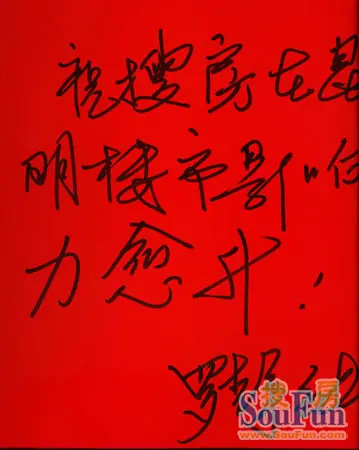 祝搜房在昆
明楼市影响
力愈升！
罗
搜房
SouFun
www.SouFun.com